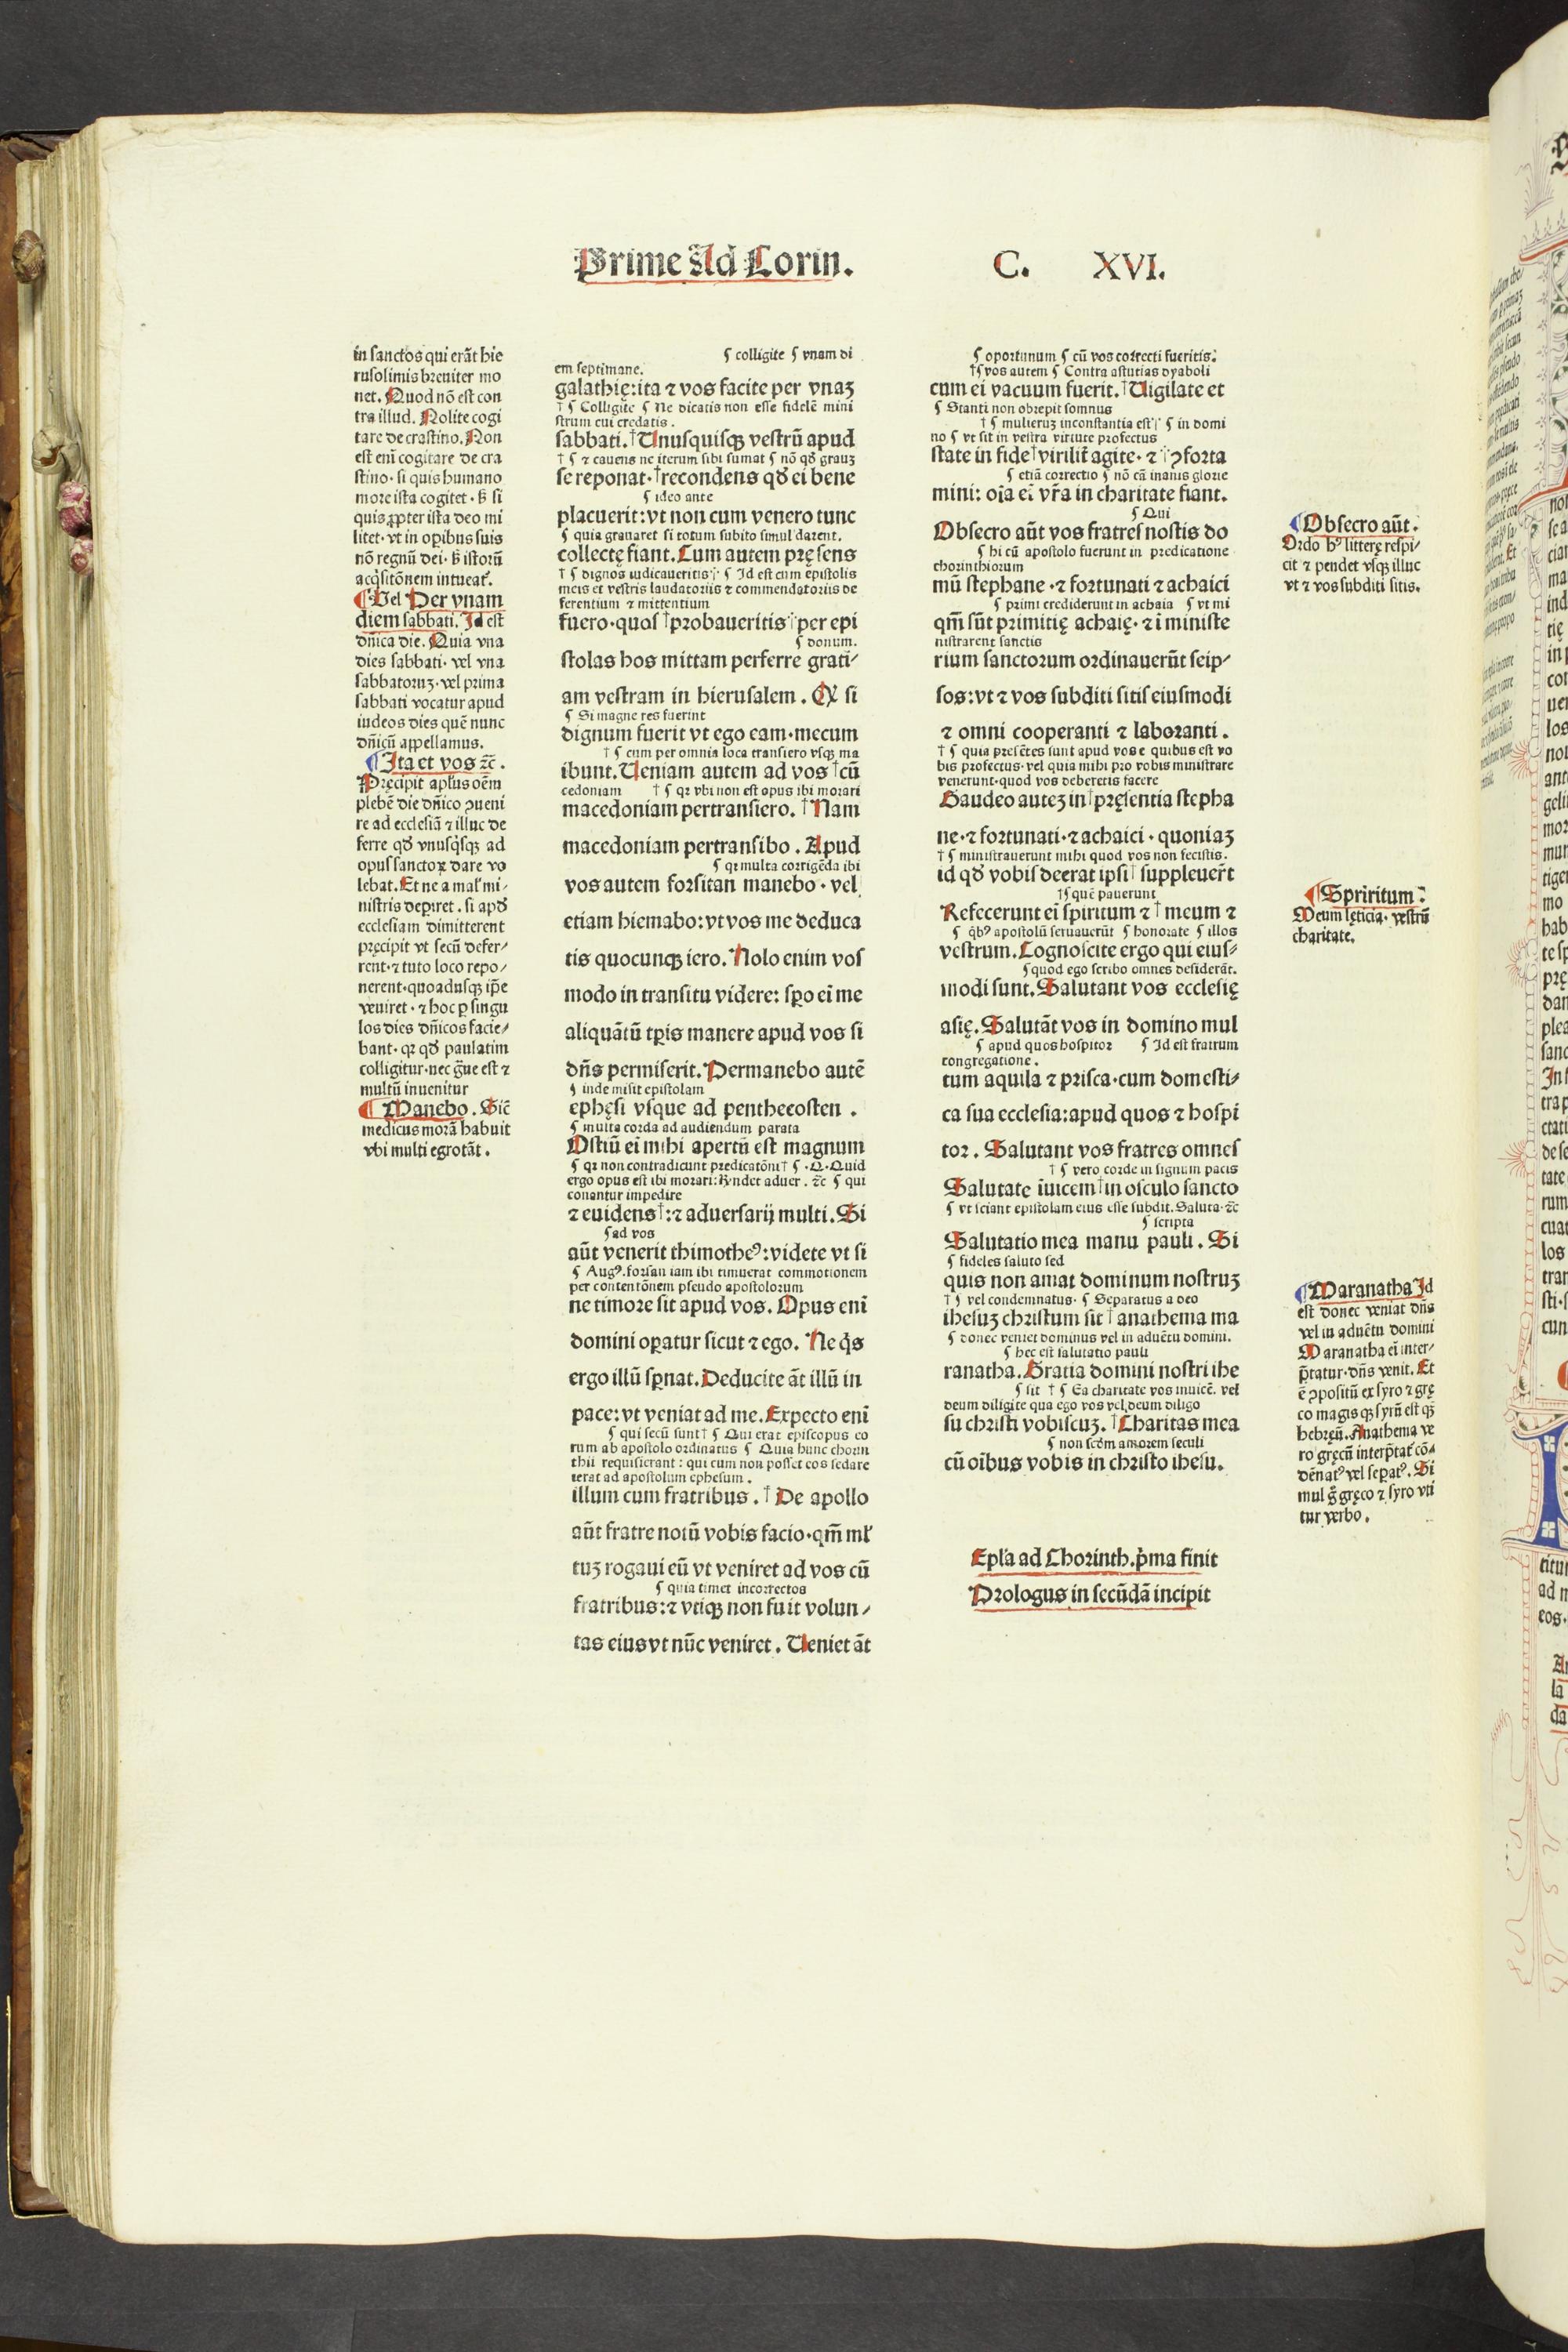 Prime Ad Corin. C. XVI.
in sanctos qui erāt hie
rusolimis breuiter mo
net. Quod nō est con
tra illud. Nolite cogi
tare de crastino. Non
est enī cogitare de cra
stino· si quis humano
more ista cogitet·
quis ꝓpter ista deo mi
litet· vt in oꝑibus suis
nō regnū dei· istorū
acq̇sitōnem intueat᷑.
¶ Vel Per vnam
diem sabbati. Id est
dn̄ica die. Quia vna
dies sabbati· vel vna
sabbatoruꝫ· vel prima
sabbati vocatur apud
iudeos dies quē nunc
dn̄icū appellamus.
¶ Ita et vos ⁊c̄.
Pręcipit apl̓us oēm
plebē die dn̄ico ꝯueni
re ad ecclesiā ⁊ illuc de
ferre qď vnusq̇sqꝫ ad
opus sanctoꝝ dare vo
lebat. Et ne a mal̓ mi⸗
nistris deꝑiret. si apď
ecclesiam dimitterent
pręcipit vt secū defer⸗
rent· ⁊ tuto loco repo⸗
nerent· quoadusqꝫ ip̄e
veniret· ⁊ hoc ꝑ singu
los dies dn̄icos facie⸗
bant· qꝛ qď paulatim
colligitur· nec g̈ue est ⁊
multū inuenitur
¶ Manebo. Sic̄
medicus morā habuit
vbi multi egrotāt.
¶ colligite ¶ vnam di
em septimane.
galathię: ita ⁊ vos facite per vnaꝫ
† ¶ Colligite ¶ Ne dicatis non esse fidelē mini
strum cui credatis.
sabbati. † Unusquisqꝫ vestrū apud
† ¶ ⁊ cauens ne iterum sibi sumat ¶ nō qď grauꝫ
se reponat· † recondens qď ei bene
¶ ideo ante
placuerit: vt non cum venero tunc
¶ quia grauaret si totum subito simul darent.
collectę fiant. Cum autem pręsens
† ¶ dignos iudicaueritis ¶ Id est cum epistolis
meis et vestris laudatoriis ⁊ commendatoriis de
ferentium ⁊ mittentium
fuero· quos † probaueritis per epi
¶ donum.
stolas hos mittam perferre grati⸗
am vestram in hierusalem. Qꝙ si
¶ Si magne res fuerint
dignum fuerit vt ego eam· mecum
† ¶ cum per omnia loca transiero vsqꝫ ma
ibunt. Ueniam autem ad vos † cū
cedoniam † ¶ qꝛ vbi non est opus ibi morari
macedoniam pertransiero. † Nam
macedoniam pertransibo. Apud
¶ qꝛ multa corrigēda ibi
vos autem forsitan manebo· vel
etiam hiemabo: vt vos me deduca
tis quocunqꝫ iero. Nolo enim vos
modo in transitu videre: sꝑo ei̅ me
aliquātū tp̄is manere apud vos si
dn̄s permiserit. Permanebo autē
¶ inde misit epistolam
ephęsi vsque ad penthecosten.
¶ multa corda ad audiendum parata
Ostiū ei̅ mihi apertū est magnum
¶ qꝛ non contradicunt predicatōni † ¶ ·Q· Quid
ergo opus est ibi morari: Rn̄det aduer. ⁊c̄ ¶ qui
conantur impedire
⁊ euidens †: ⁊ aduersarij multi. Si
¶ ad vos
aūt venerit thimotheꝰ: videte vt si
¶ Augꝰ. forsan iam ibi timuerat commotionem
per contentōnem pseudo apostolorum
ne timore sit apud vos. Opus enī
domini oꝑatur sicut ⁊ ego. Ne q̇s
ergo illū sꝑnat. Deducite āt illū in
pace: vt veniat ad me. Expecto enī
¶ qui secū sunt † ¶ Qui erat episcopus co
rum ab apostolo ordinatus ¶ Quia hunc chorin
thii requisierant: qui cum non posset eos sedare
ierat ad apostolum ephesum.
illum cum fratribus. † De apollo
aūt fratre notū vobis facio· qm̄ ml̓
tuꝫ rogaui eū vt veniret ad vos cū
¶ quia timet incorrectos
fratribus: ⁊ vtiqꝫ non fuit volun⸗
tas eius vt nūc veniret. Ueniet āt
¶ oportunum ¶ cū vos correcti fueritis.
† ¶ vos autem ¶ Contra astutias dyaboli
cum ei vacuum fuerit. † Uigilate et
¶ Stanti non obrepit somnus
† ¶ mulieruꝫ inconstantia est ¶ in domi
no ¶ vt sit in vestra virtute profectus
state in fide † virilit᷑ agite· ⁊ ꝯforta
¶ etiā correctio ¶ nō cā inanis glorie
mini: oi̅a ei̅ vr̄a in charitate fiant.
¶ Qui
Obsecro aūt vos fratres nostis do
¶ hi cū apostolo fuerunt in predicatione
chorinthiorum
mū stephane· ⁊ fortunati ⁊ achaici
¶ primi crediderunt in achaia ¶ vt mi
qm̄ sūt primitię achaię· ⁊ i̅ ministe
nistrarent sanctis
rium sanctorum ordinauerūt seip⸗
sos: vt ⁊ vos subditi sitis eiusmodi
⁊ omni cooperanti ⁊ laboranti.
† ¶ quia presētes sunt apud vos e quibus est vo
bis profectus· vel quia mihi pro vobis ministrare
venerunt· quod vos deberetis facere
Gaudeo auteꝫ in † pręsentia stepha
ne· ⁊ fortunati· ⁊ achaici· quoniaꝫ
† ¶ ministrauerunt mihi quod vos non fecistis.
id qď vobis deerat ipsi † suppleuer̄t
† ¶ quē pauerunt
Refecerunt ei̅ spiritum ⁊ † meum ⁊
¶ q̇bꝰ apostolū seruauerūt ¶ honorate ¶ illos
vestrum. Cognoscite ergo qui eius⸗
¶ quod ego scribo omnes desiderāt.
modi sunt. Salutant vos ecclesię
asię. Salutāt vos in domino mul
¶ apud quos hospitor ¶ Id est fratrum
congregatione.
tum aquila ⁊ prisca· cum domesti⸗
ca sua ecclesia: apud quos ⁊ hospi
tor. Salutant vos fratres omnes
† ¶ vero corde in signum pacis
Salutate i̅uicem † in osculo sancto
¶ vt sciant epistolam eius esse subdit. Saluta· ⁊c̄
¶ scripta
Salutatio mea manu pauli. Si
¶ fideles saluto sed
quis non amat dominum nostruꝫ
† ¶ vel condemnatus· ¶ Separatus a deo
ihesuꝫ christum sit † anathema ma
¶ donec veniet dominus vel in aduētu domini.
¶ hec est salutatio pauli
ranatha. Gratia domini nostri ihe
¶ sit † ¶ Ea charitate vos inuicē. vel
deum diligite qua ego vos vel deum diligo
su christi vobiscuꝫ. † Charitas mea
¶ non scḋm amorem seculi
cū oi̅bus vobis in christo ihesu.
Epl̓a ad Chorinth. p̓ma finit
Prologus in secūdā incipit
¶ Obsecro aūt.
Ordo hꝰ litterę respi⸗
cit ⁊ pendet vsqꝫ illuc
vt ⁊ vos subditi sitis.
¶ Spriritum
Meum lęticia· vestrū
charitate.
¶ Maranatha Id
est donec veniat dn̄s
vel in aduētu domini
Maranatha ei̅ inter⸗
p̄tatur· dn̄s venit. Et
ē ꝯpositū ex syro ⁊ grę
co magis qꝫ syrū est qꝫ
hebręū. Anathema ve
ro gręcū interp̄tat᷑ cō⸗
dēnatꝰ vel seꝑatꝰ. Si
mul g̊ gręco ⁊ syro vti
tur verbo.